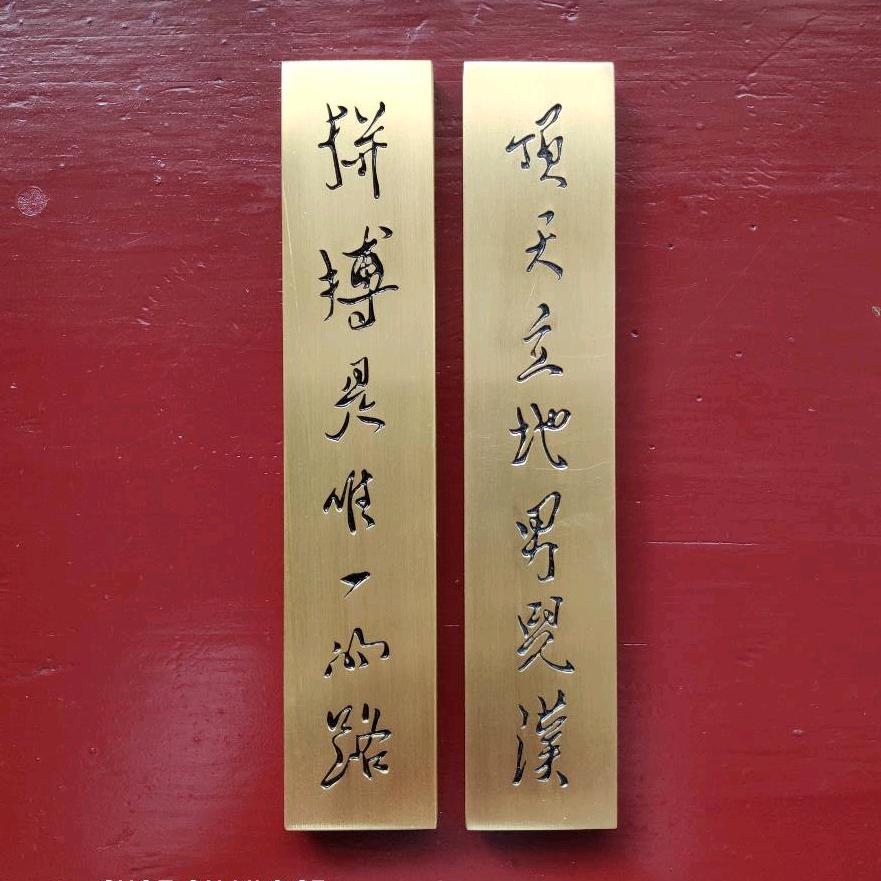 頂天立地男兒漢
拼搏是唯一的路